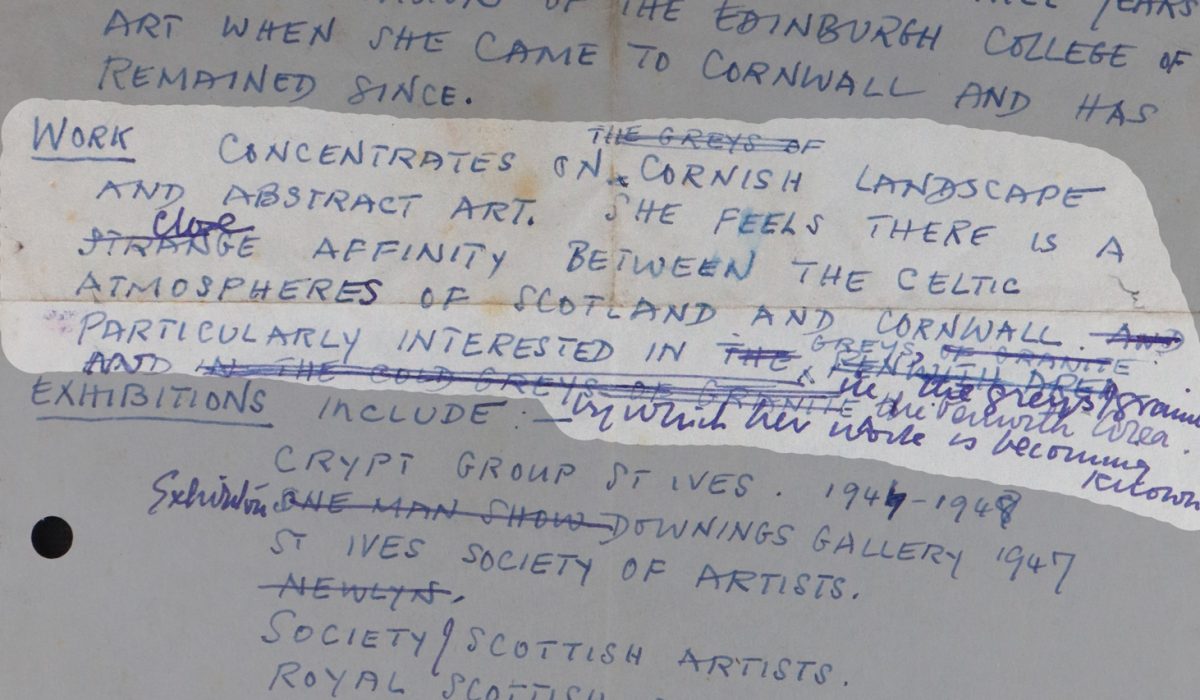 OF THE EDINBURGH COLLEGE OF
ART WHEN SHE CAME TO CORNWALL AND HAS
REMAINED SINCE.
THE GREYS OF
WORK CONCENTRATES ON CORNISH LANDSCAPE
AND ABSTRACT ART. SHE FEELS THERE IS A
close
STRANGE AFFINITY BETWEEN THE CELTIC
ATMOSPHERES OF SCOTLAND AND CORNWALL. AND
PARTICULARLY INTERESTED IN THE GREYS OF GRANITE.
PENWITH AREA
AND IN THE COLD GREYS OF GRANITE in the greys
the Penwith area.
by which her work is becoming
known
EXHIBITIONS INCLUDE:—
CRYPT GROUP ST IVES. 1947-1948
Exhibition ONE MAN SHOW DOWNINGS GALLERY 1947
ST IVES SOCIETY OF ARTISTS.
NEWLYN.
SOCIETY of SCOTTISH ARTISTS.
ROYAL SCOTTISH